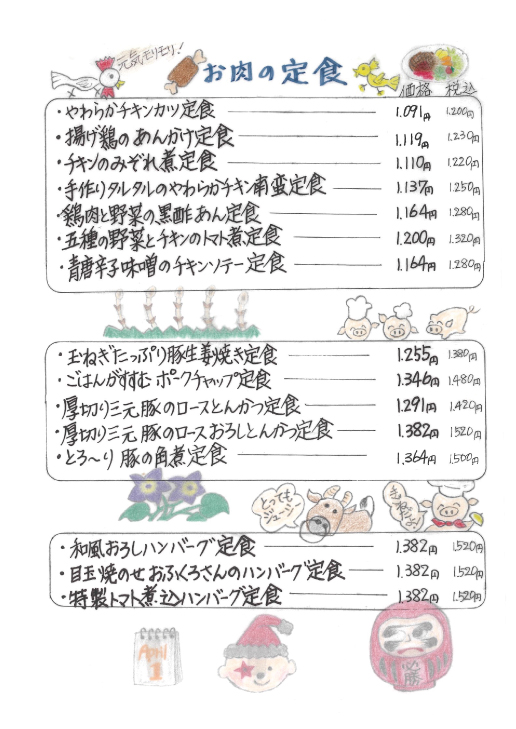 元気モリモリ!
お肉の定食
価格 税込
・やわらかチキンカツ定食 1.091円 1.200円
・揚げ鶏のあんかけ定食 1.119円 1.230円
・チキンのみぞれ煮定食 1.110円 1.220円
・手作りタルタルのやわらかチキン南蛮定食 1.137円 1.250円
・鶏肉と野菜の黒酢あん定食 1.164円 1.280円
・五種の野菜とチキンのトマト煮定食 1.200円 1.320円
・青唐辛子味噌のチキンソテー定食 1.164円 1.280円
・玉ねぎたっぷり豚生姜焼き定食 1.255円 1.380円
・ごはんがすすむ ポークチャップ定食 1.346円 1.480円
・厚切り三元豚のロースとんかつ定食 1.291円 1.420円
・厚切り三元豚のロースおろしとんかつ定食 1.382円 1520円
・とろ〜り豚の角煮定食 1.364円 1,500円
とっても
ジューシー
・和風おろしハンバーグ定食 1.382円 1.520円
・目玉焼のせおふくろさんのハンバーグ定食 1.382円 1.520円
・特製トマト煮込ハンバーグ定食 1.382円 1.520円
April
1
必勝